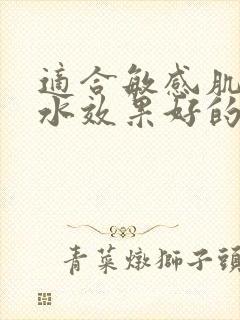 適合敏感肌
水效果好的
青菜燉獅子頭